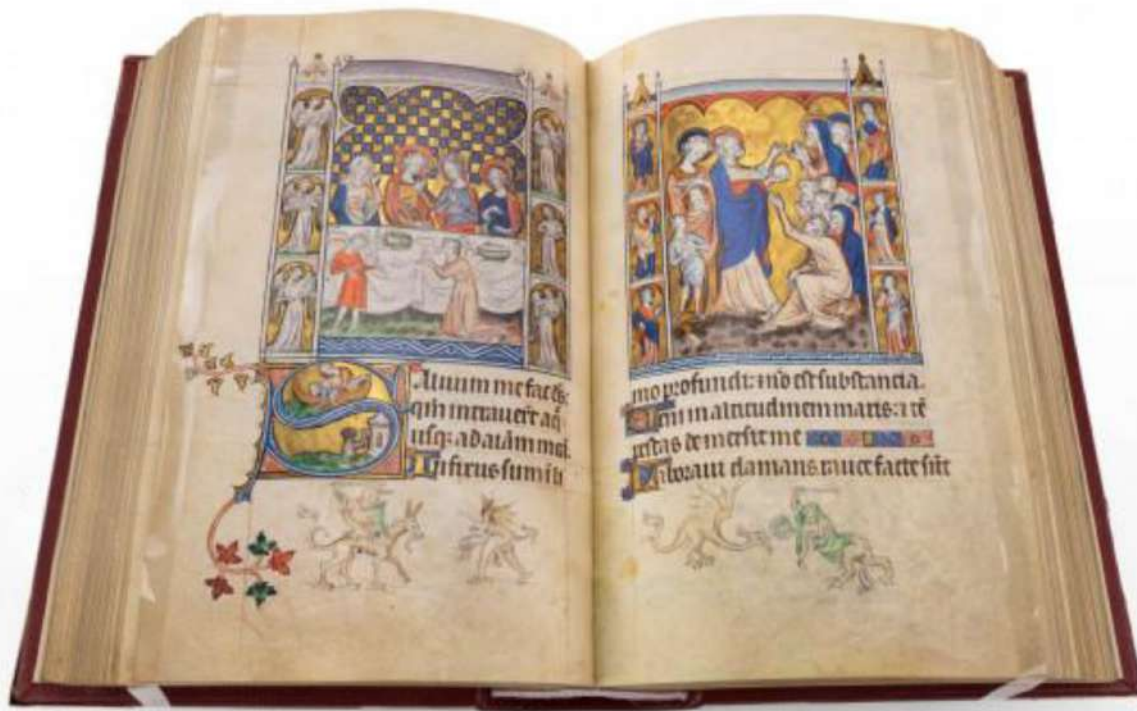 Saluum me fac ds̄:
qm̄ intrauerr̄t aq̄
usq; ad aīam meā.
Infixus sum i li
mo profundi: ⁊ nō est substancia.
Veni in altitudinem maris: ⁊ tē
pestas demersit me
Laboraui clamans rauce facte sūt